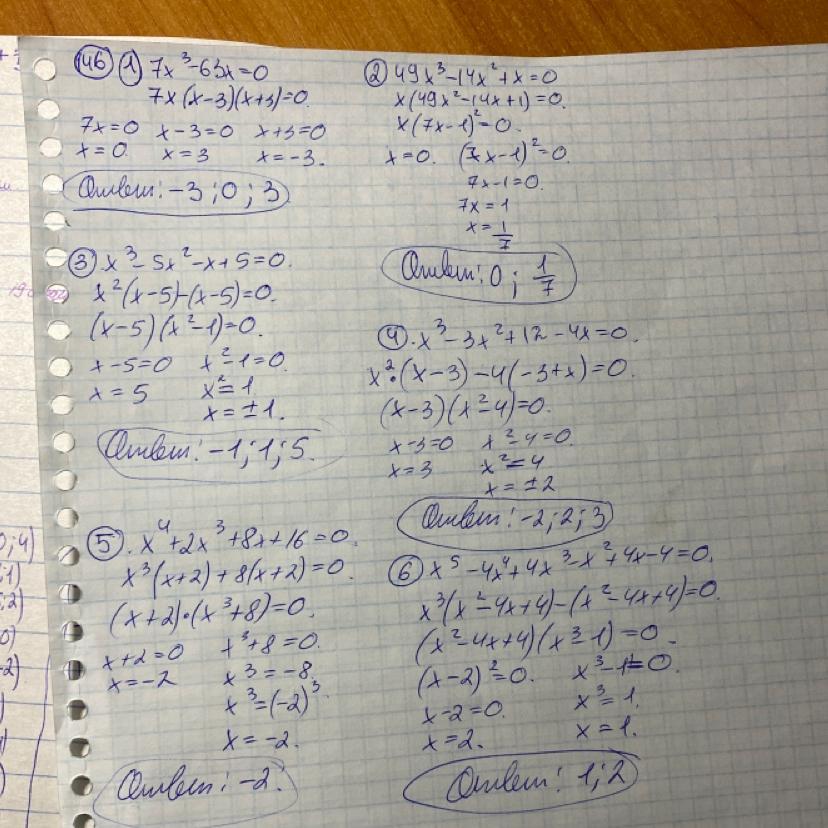 146 1 7x³-63x=0
7x(x-3)(x+3)=0.
7x=0 x-3=0 x+3=0
x=0. x=3 x=-3.
Ответ: -3; 0; 3
2 49x³-14x²+x=0
x(49x²-14x+1)=0.
x(7x-1)²=0.
x=0. (7x-1)²=0.
7x-1=0.
7x=1
x=1/7
Ответ: 0; 1/7
3 x³-5x²-x+5=0.
x²(x-5)-(x-5)=0.
(x-5)(x²-1)=0.
x-5=0 x²-1=0.
x=5 x²=1
x=±1.
Ответ: -1; 1; 5.
4. x³-3x²+12-4x=0.
x²·(x-3)-4(-3+x)=0.
(x-3)(x²-4)=0.
x-3=0 x²-4=0.
x=3 x²=4
x=±2
Ответ: -2; 2; 3
5. x⁴+2x³+8x+16=0.
x³(x+2)+8(x+2)=0.
(x+2)·(x³+8)=0.
x+2=0 x³+8=0.
x=-2 x³=-8.
x³=(-2)³
x=-2.
Ответ: -2.
6 x⁵-4x⁴+4x³-x²+4x-4=0.
x³(x²-4x+4)-(x²-4x+4)=0.
(x²-4x+4)(x³-1)=0.
(x-2)²=0. x³-1=0.
x-2=0. x³=1.
x=2. x=1.
Ответ: 1; 2